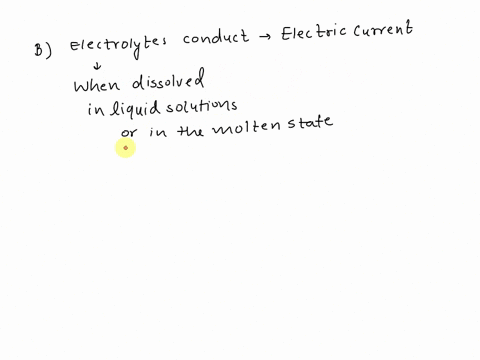 B) Electrolytes conduct → Electric current
↓
When dissolved
in liquid solutions
or in the molten state